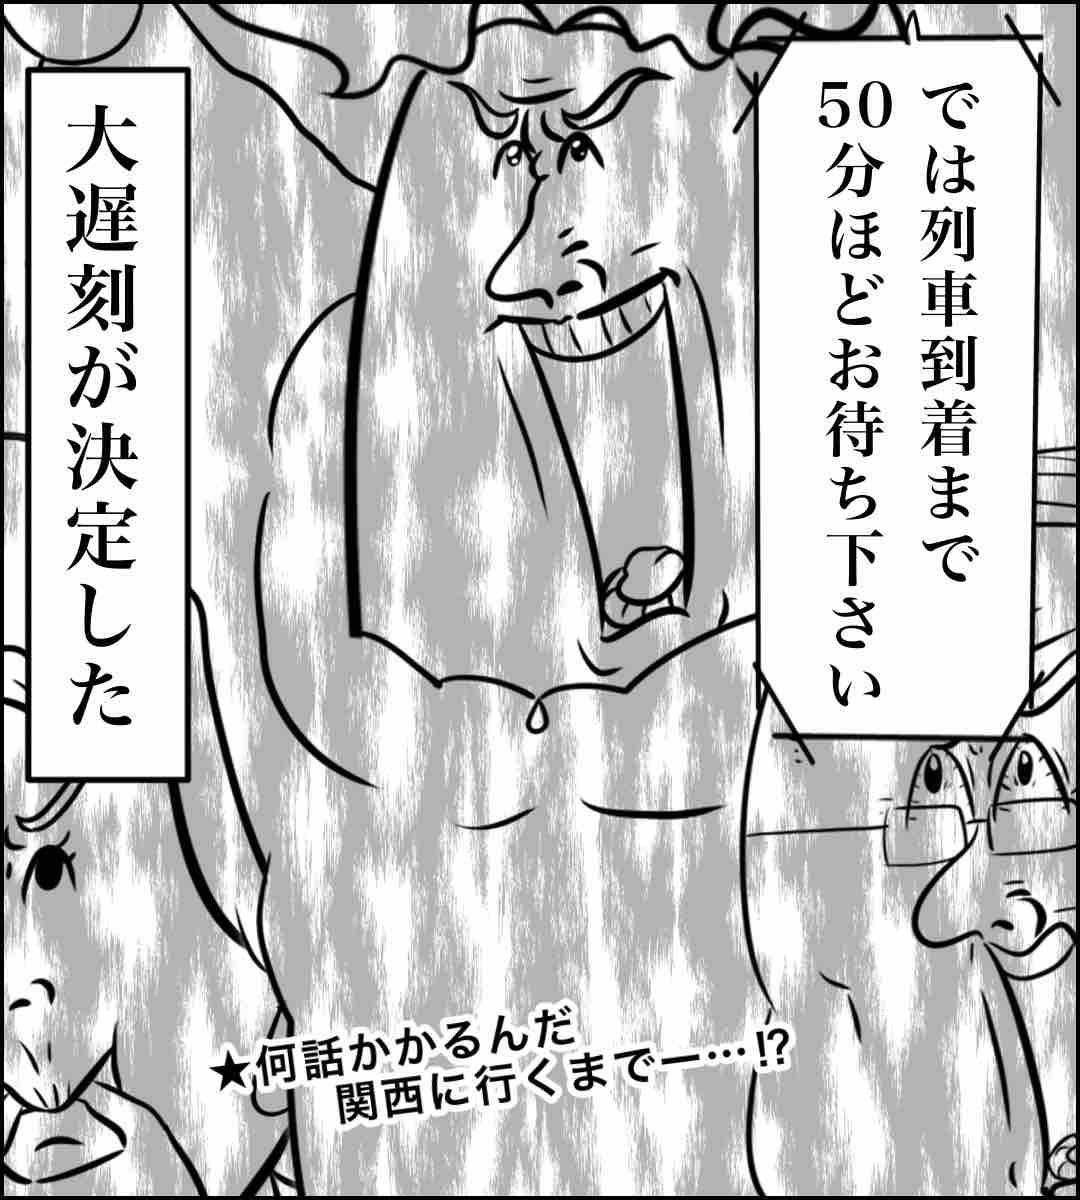 では列車到着まで
50分ほどお待ち下さい
大遅刻が決定した
★何話かかるんだ
関西に行くまでー…!?